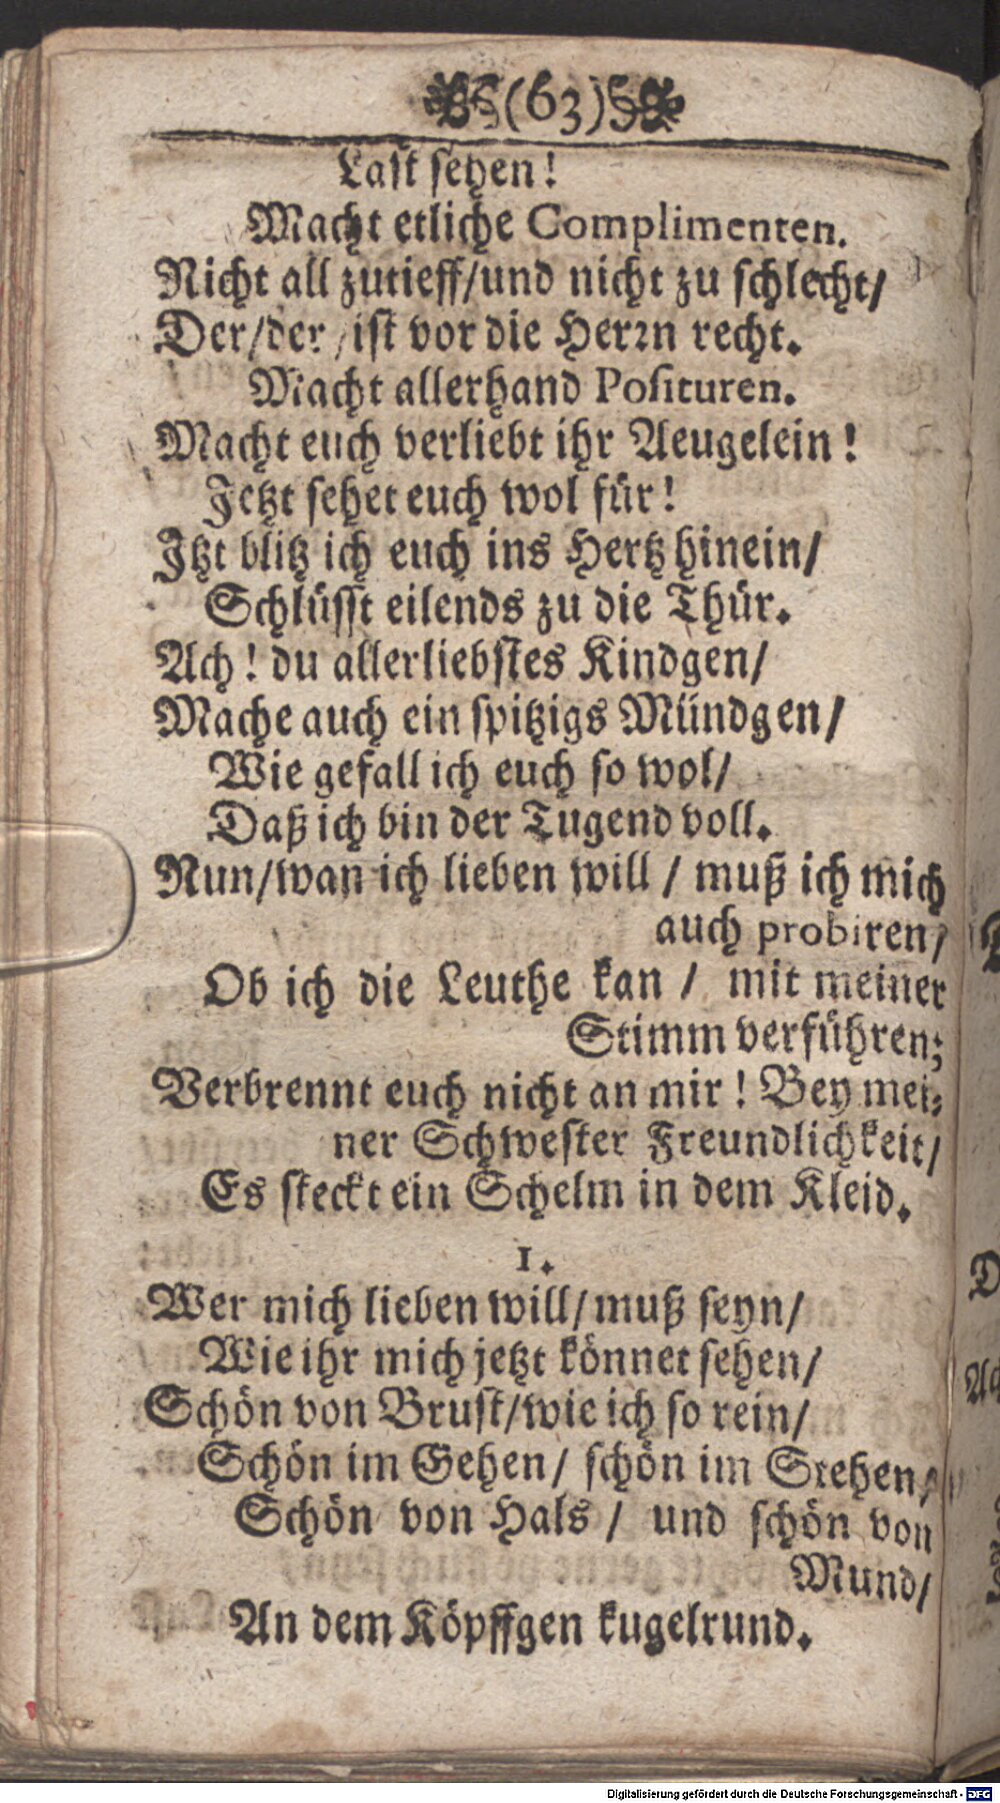 (63)
Last sehen!
Macht etliche Complimenten.
Nicht all zutieff/und nicht zu schlecht/
Der/der/ist vor die Herrn recht.
Macht allerhand Posituren.
Macht euch verliebt ihr Aeugelein!
Jetzt sehet euch wol für!
Jtzt blitz ich euch ins Hertz hinein/
Schlüsst eilends zu die Thür.
Ach! du allerliebstes Kindgen/
Mache auch ein spitzigs Mündgen/
Wie gefall ich euch so wol/
Daß ich bin der Tugend voll.
Nun/wan ich lieben will / muß ich mich
auch probiren/
Ob ich die Leuthe kan / mit meiner
Stimm verführen;
Verbrennt euch nicht an mir! Bey mei-
ner Schwester Freundlichkeit/
Es steckt ein Schelm in dem Kleid.
1.
Wer mich lieben will/muß seyn/
Wie ihr mich jetzt könnet sehen/
Schön von Brust/wie ich so rein/
Schön im Gehen/ schön im Stehen/
Schön von Hals / und schön von
Mund/
An dem Köpffgen kugelrund.
Digitalisierung gefördert durch die Deutsche Forschungsgemeinschaft - DFG